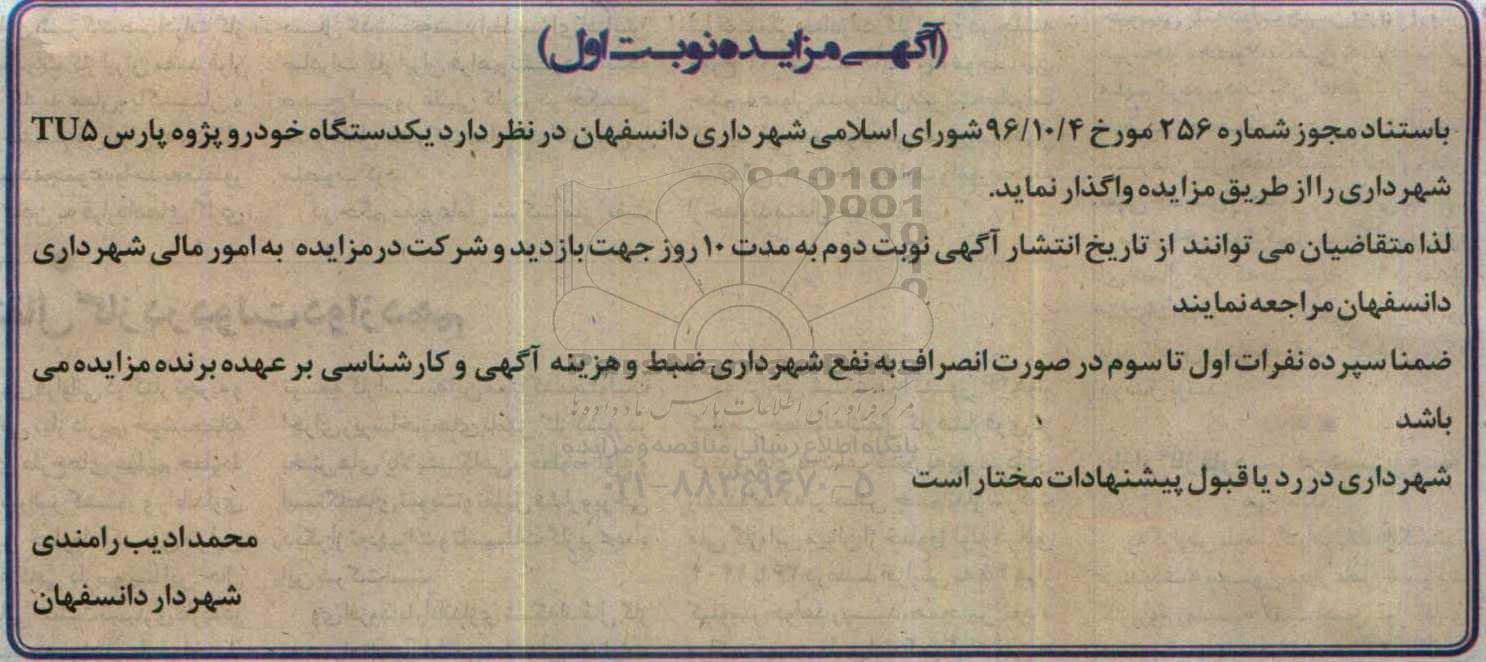 (آگهی مزایده نوبت اول)
باستناد مجوز شماره ۲۵۶ مورخ ۹۶/۱۰/۴ شورای اسلامی شهرداری دانسفهان در نظر دارد یکدستگاه خودرو پژوه پارس TU۵
شهرداری را از طریق مزایده واگذار نماید.
لذا متقاضیان می توانند از تاریخ انتشار آگهی نوبت دوم به مدت ۱۰ روز جهت بازدید و شرکت در مزایده به امور مالی شهرداری
دانسفهان مراجعه نمایند
ضمنا سپرده نفرات اول تا سوم در صورت انصراف به نفع شهرداری ضبط و هزینه آگهی و کارشناسی بر عهده برنده مزایده می
باشد
مرکز فرآوری اطلاعات پارس ماد داده ها
پایگاه اطلاع رسانی مناقصه و مزایده
۰۲۱-۸۸۳۴۹۶۷۰-۵
شهرداری در رد یا قبول پیشنهادات مختار است
محمد ادیب رامندی
شهردار دانسفهان